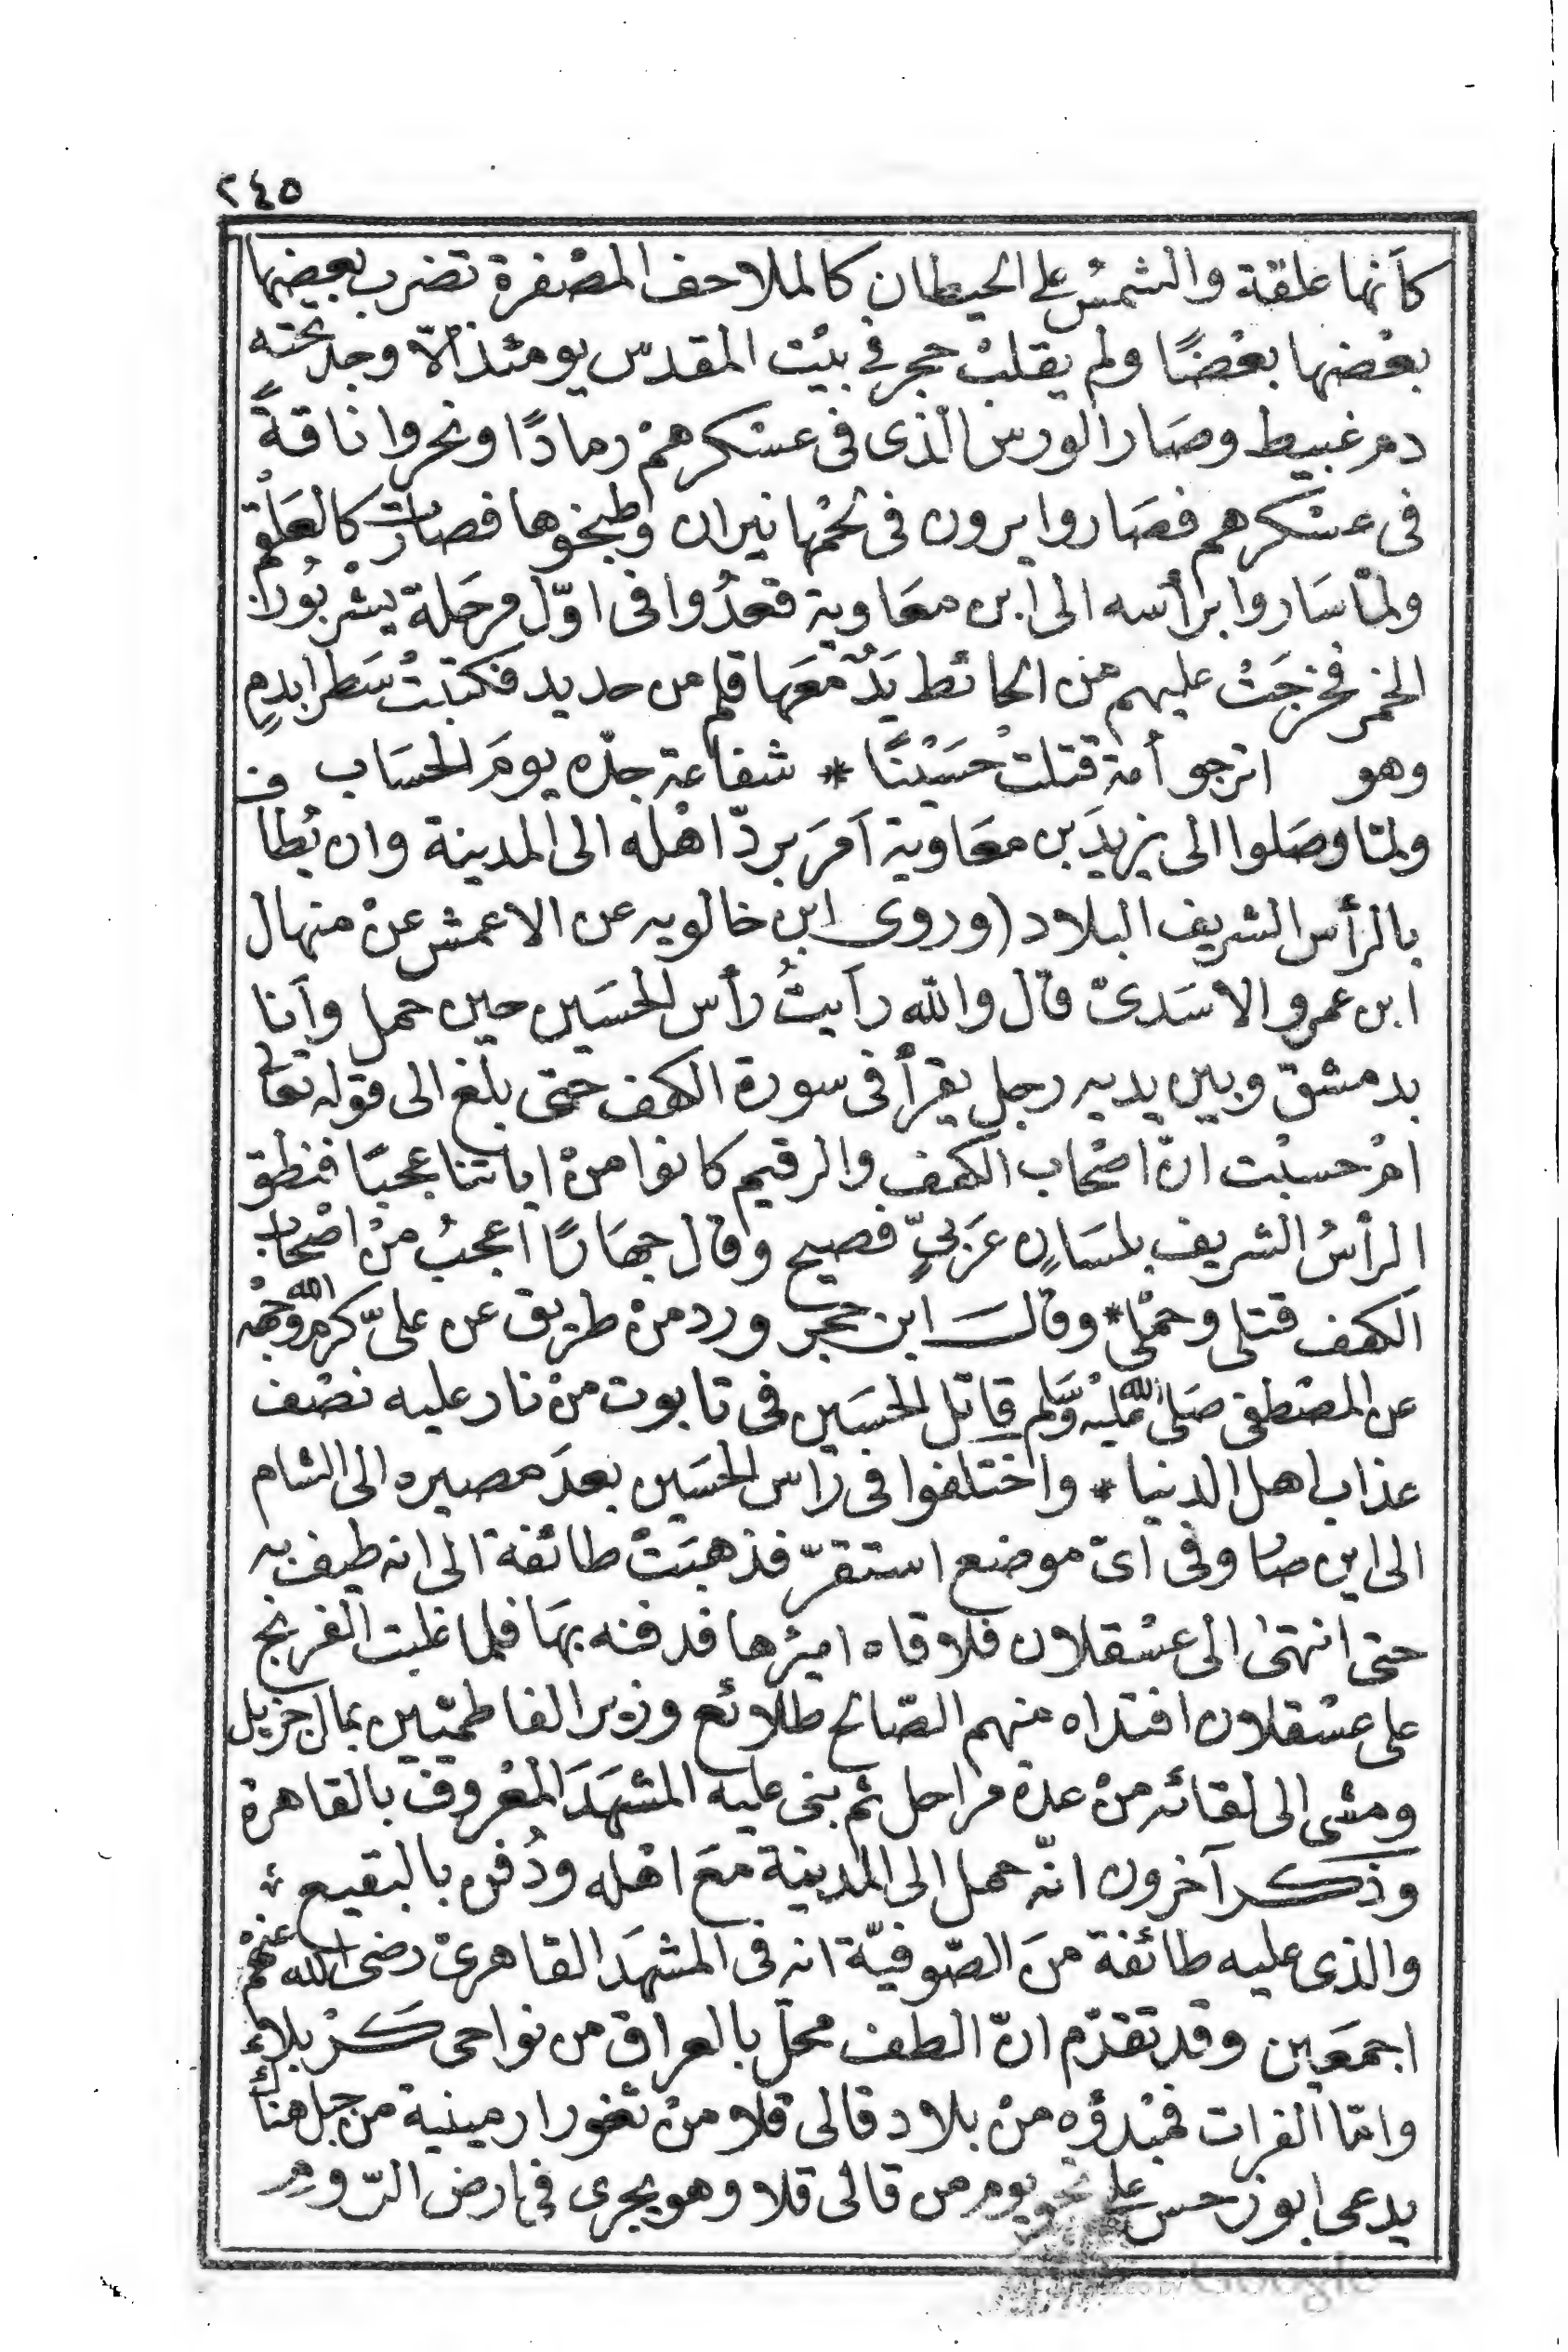 ٢٤٥
كأنها علقة والشمسُ على الحيطان كالملاحف المصْفرة تضرب بعضها
بعْضها بعْضًا ولم يقلبْ حجر في بيْت المقدس يومئذ الّا وجد تحته
دم غبيط وصَار الورس الّذى فى عسْكرهمْ رمادًا ونحروا ناقةً
فى عسْكرهم فصَاروا يرون فى لحْمها نيران وطبخوها فصارتْ كالعَلْقم
ولمّا سَاروا برأسه الى ابن معَاوية قعدُوا فى اوّل مرحَلة يشْربُون
الخمر فخرجَتْ عليهم من الحائط يَدٌ معَها قلم من حديد فكتبَتْ سَطرا بدمٍ
وهو اترجو أمة قتلتْ حسَيْنًا * شفاعة جدّه يومَ الحسَاب ف
ولمّا وصَلوا الى يزيدَ بن معَاوية اَمَرَ بردّ اهْله الى المدينة وان يُطا
بالرأس الشريف البلاد (وروى ابن خالويه عن الاعمش عنْ منهال
ابن عمرو الاسَدىّ قال والله رآيتُ رأس الحسَين حين حمل وآنا
بدمشقّ وبين يديه رجل يقرأ فى سورة الكهف حتى بلغ الى قوله تعالى
امْ حسبْت انّ اصْحاب الكهف والرقيم كانوا منْ اياتنا عجبًا فنطق
الرأسُ الشريف بلسَانٍ عَرَبيٍّ فصيح وقال جهَارًا اعجبُ منْ اصْحاب
الكهف قتلى وحمْلى * وقال ابن حجر ورد منْ طريق عن علىّ كرم الله وجْهه
عن المصْطفى صَلى الله عليْه وسَلم قاتل الحسَين فى تابوت منْ نار عليه نصْف
عذاب اهل الدنيا * واختلفوا فى رَاس الحسَين بعدَ مصيره الى الشام
الى اين صار وفى اىّ موضع استقرّ فذهبَتْ طائفة الى انه طيف به
حتى انتهى الى عسْقلان فلاقاه اميرُها فدفنه بهَا فلما غلبت الفرنج
على عسْقلان افتداه منهم الصّالح طلائع وزير الفاطمّيين بمال جزيل
ومشى الى لقائه منْ عدة مراحل ثم بنى عليه المشهَدَ المعْروف بالقاهرة
وذكر آخرون انّه حمل الى المدينة معَ اهْله ودُفن بالبقيع :
والذى عليه طائفة منَ الصّوفيّة انه فى المشهَد القاهرىّ رضى الله عنهمْ
اجمعَين وقد تقدّم انّ الطف محلّ بالعراق من نواحى كرْبلاء
وامّا الفرات فمبْدؤه منْ بلاد قالى قلا منْ ثغور ارمينية من جبل هناك
يدعى ابو زحس على نحو يوم من قالى قلا وهو يجرى في ارض الرّوم